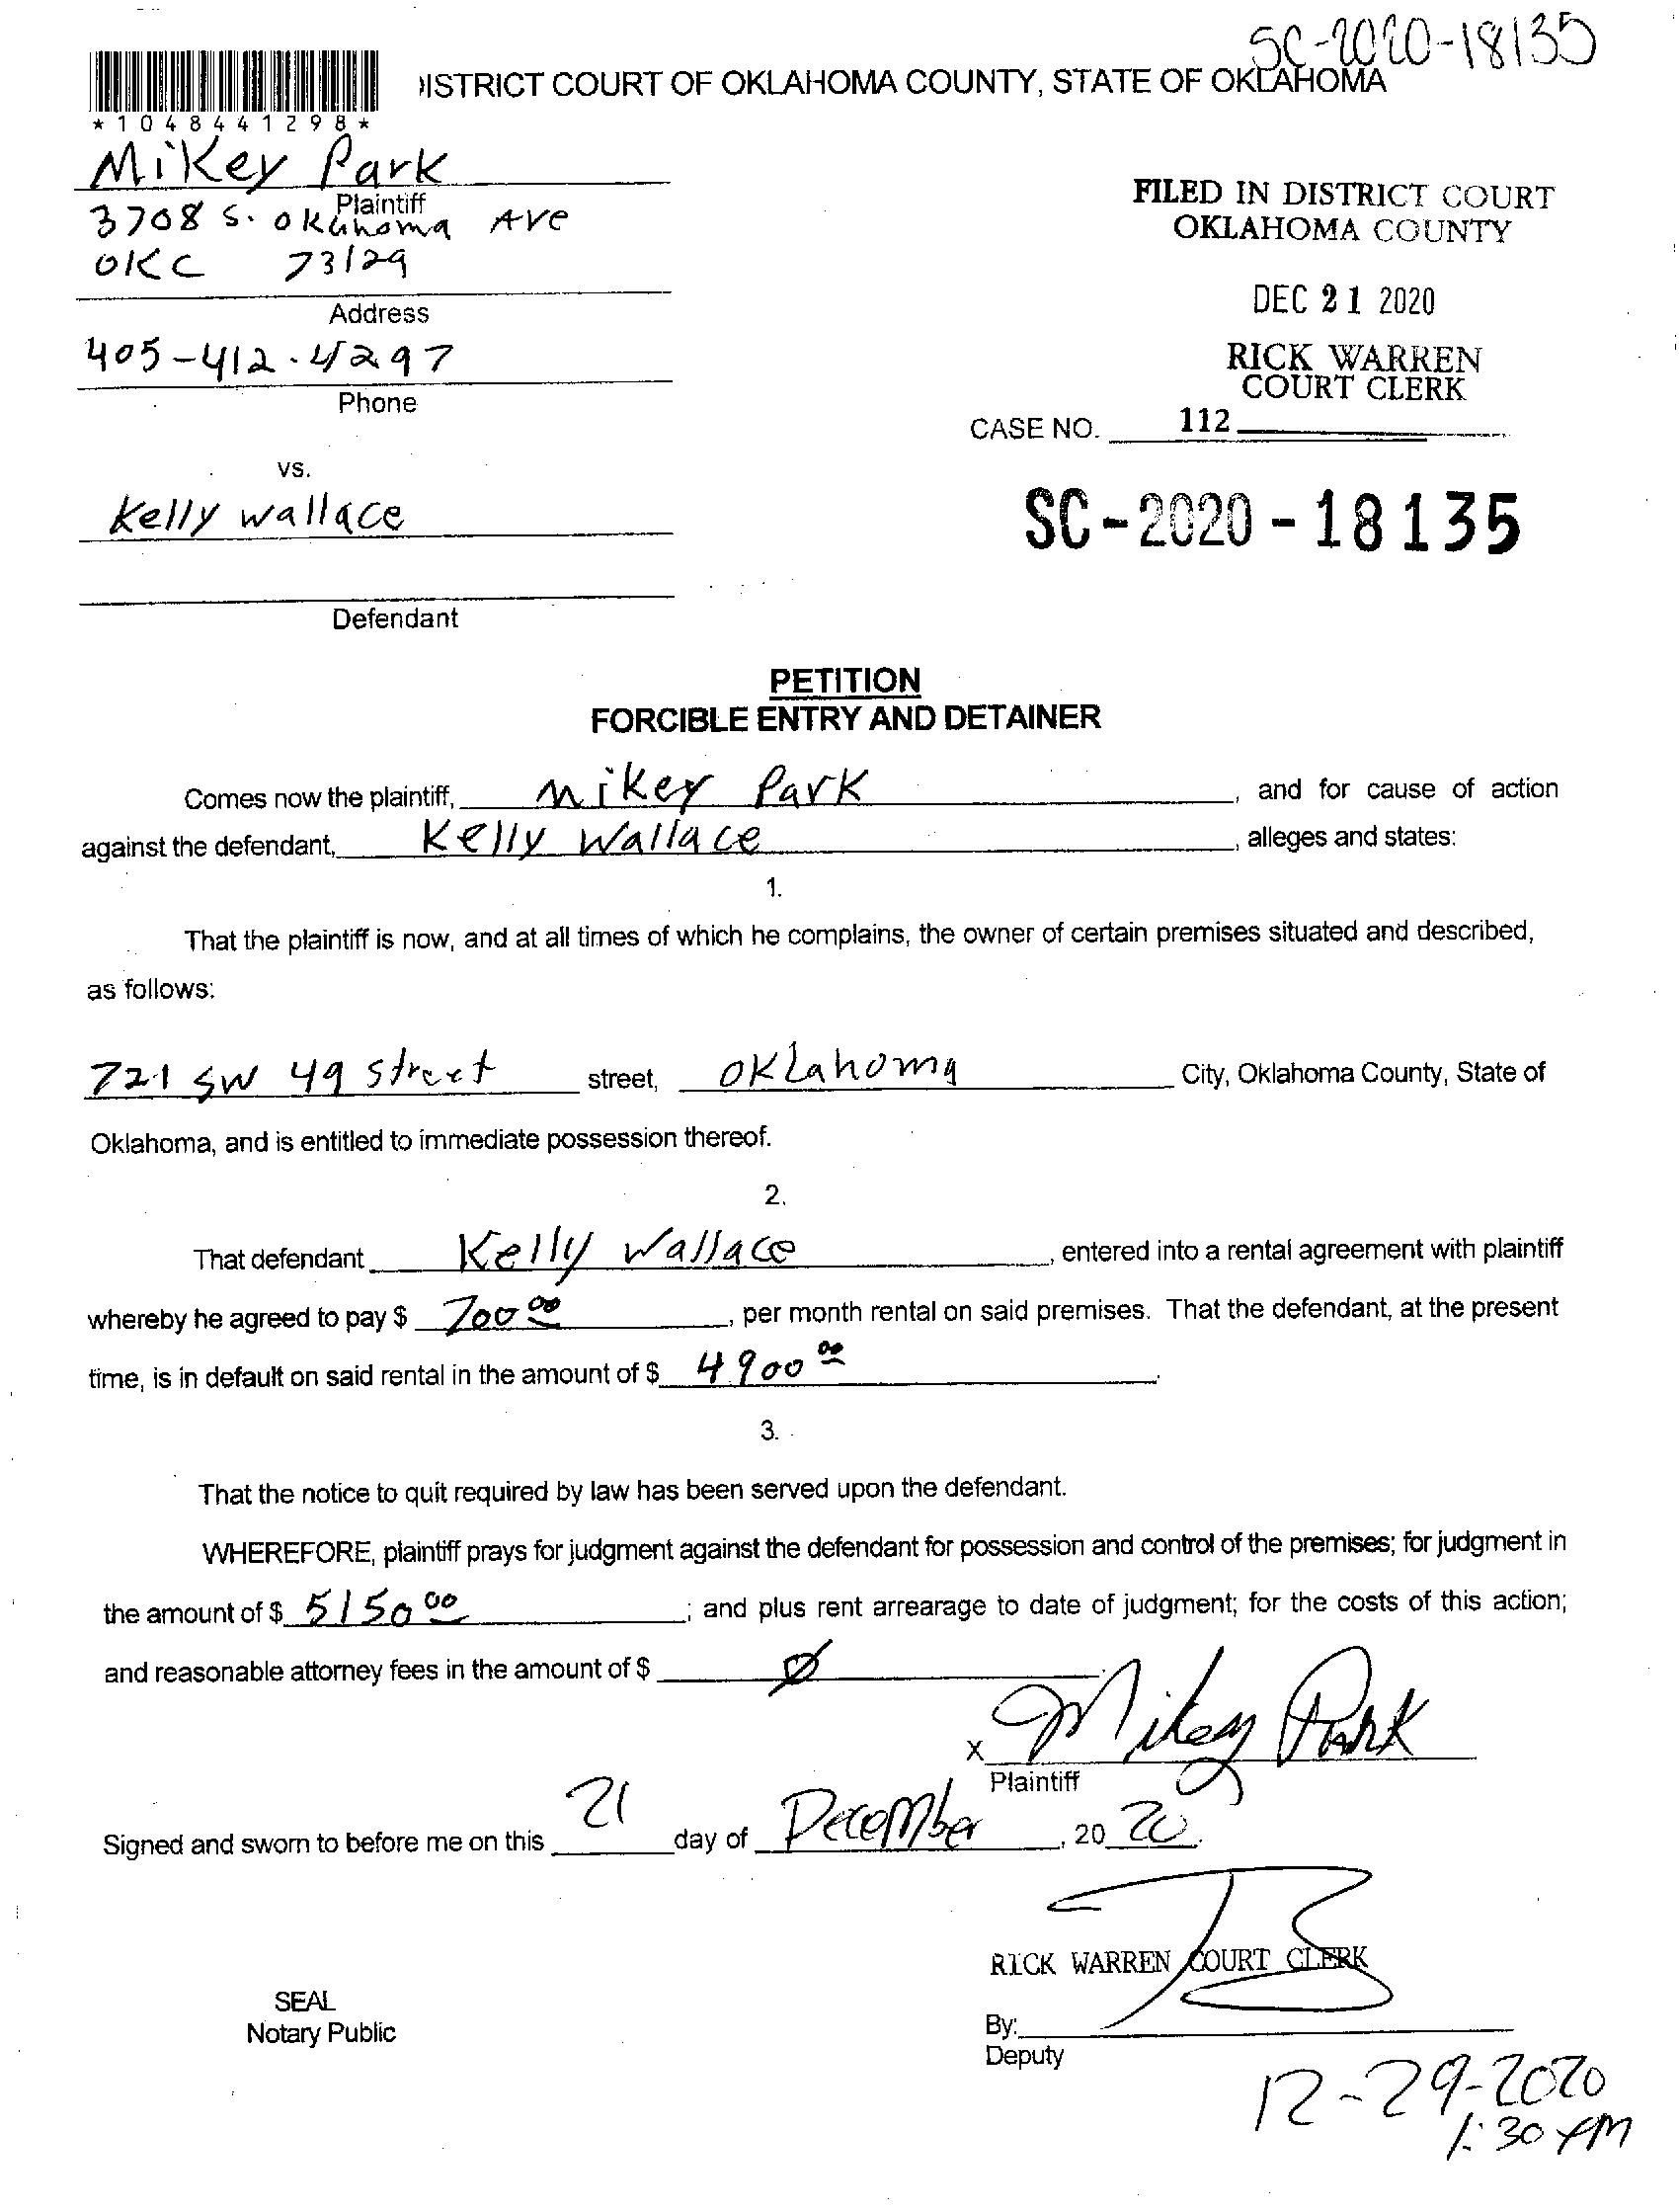 SC-2020-18135
ISTRICT COURT OF OKLAHOMA COUNTY, STATE OF OKLAHOMA
*1048441298*
Mikey Park
Plaintiff
3708 S. Oklahoma Ave
OKC 73129
Address
405-412-4297
Phone
FILED IN DISTRICT COURT
OKLAHOMA COUNTY
DEC 21 2020
RICK WARREN
COURT CLERK
CASE NO. 112
vs.
Kelly Wallace
SC-2020-18135
Defendant
PETITION
FORCIBLE ENTRY AND DETAINER
Comes now the plaintiff, Mikey Park, and for cause of action
against the defendant, Kelly Wallace, alleges and states:
1.
That the plaintiff is now, and at all times of which he complains, the owner of certain premises situated and described,
as follows:
721 SW 49 street street, Oklahoma City, Oklahoma County, State of
Oklahoma, and is entitled to immediate possession thereof.
2.
That defendant Kelly Wallace, entered into a rental agreement with plaintiff
whereby he agreed to pay $ 700 00, per month rental on said premises. That the defendant, at the present
time, is in default on said rental in the amount of $ 4900 00.
3.
That the notice to quit required by law has been served upon the defendant.
WHEREFORE, plaintiff prays for judgment against the defendant for possession and control of the premises; for judgment in
the amount of $ 5150 00; and plus rent arrearage to date of judgment; for the costs of this action;
and reasonable attorney fees in the amount of $ Ø
x Mikey Park
Plaintiff
Signed and sworn to before me on this 21 day of December, 20 20.
RICK WARREN COURT CLERK
SEAL
Notary Public
By:
Deputy
12-29-2020
1:30 PM